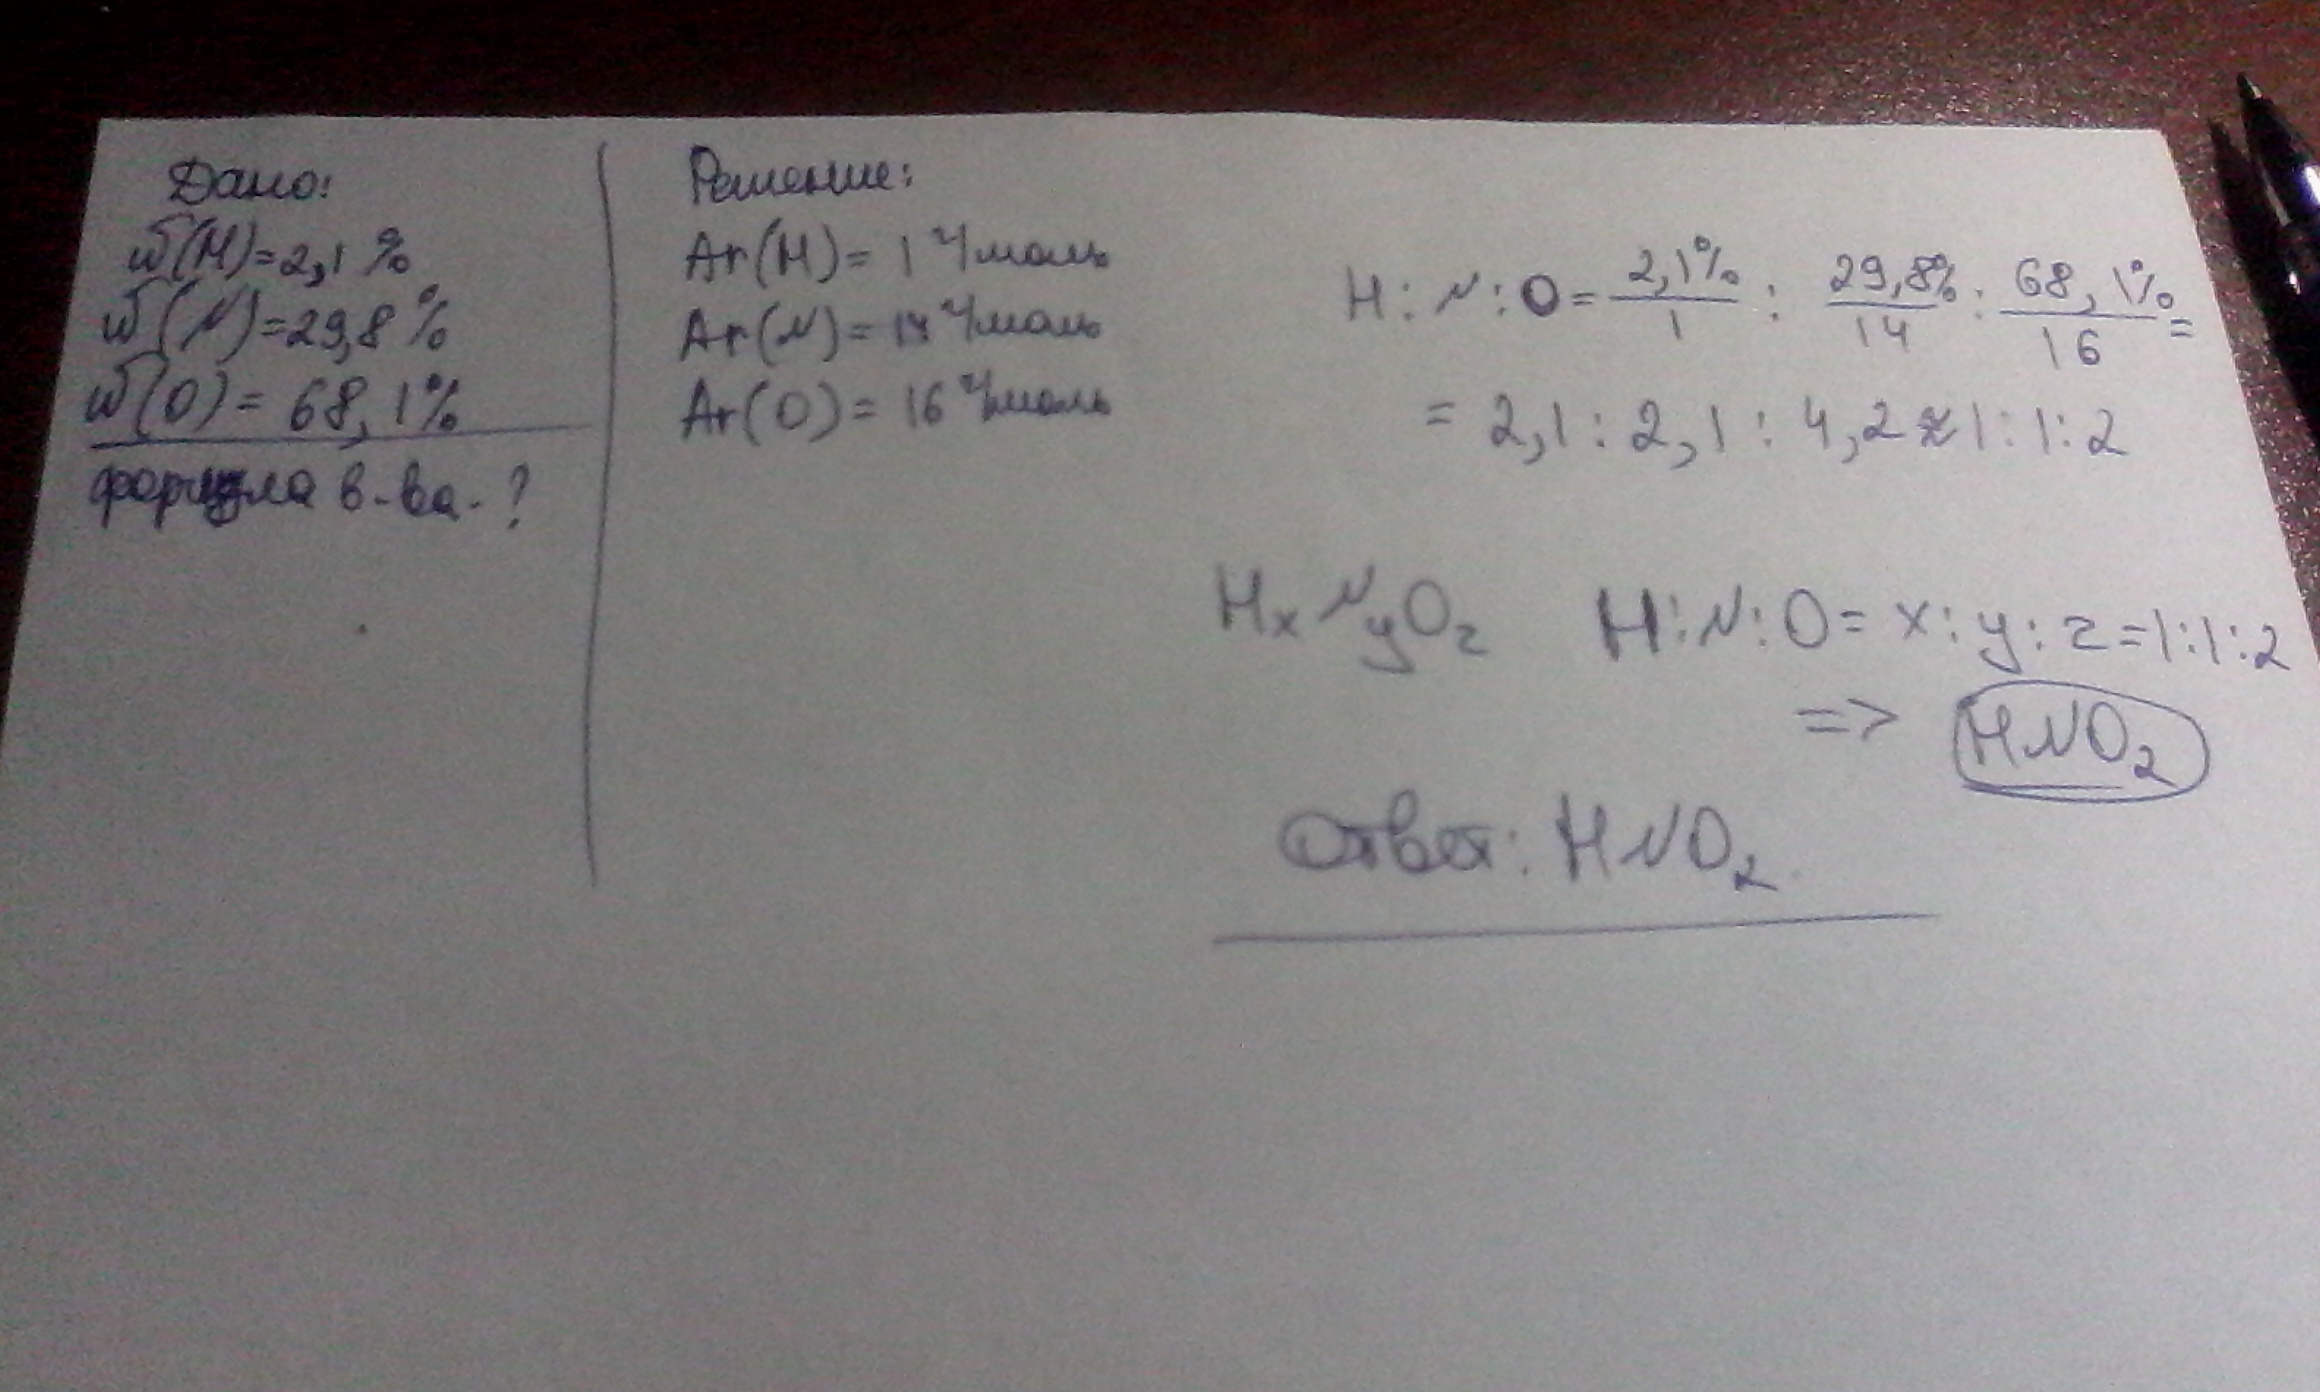 Дано:
w(H)=2,1%
w(N)=29,8%
w(O)=68,1%
формула в-ва-?
Решение:
Ar(H)=1 г/моль
Ar(N)=14 г/моль
Ar(O)=16 г/моль
H:N:O=2,1%/1 : 29,8%/14 : 68,1%/16 =
=2,1:2,1:4,2≈1:1:2
HxNyOz H:N:O=x:y:z=1:1:2
=> HNO2
Ответ: HNO2.